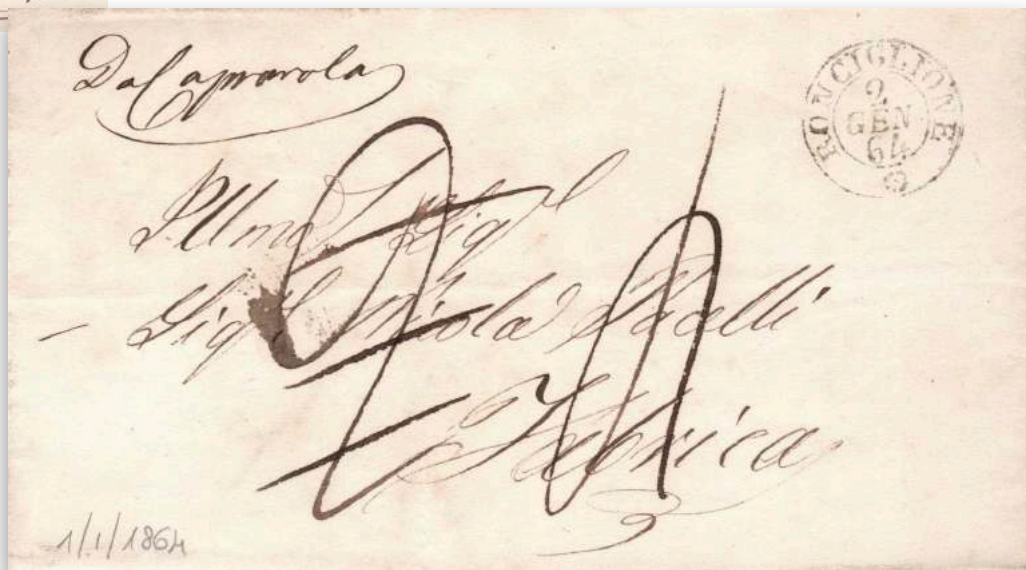 Da Caprarola
RONCIGLIONE
2
GEN
64
Illmo Sigl
Sigl Nicola Pacelli
Fabrica
1/1/1864